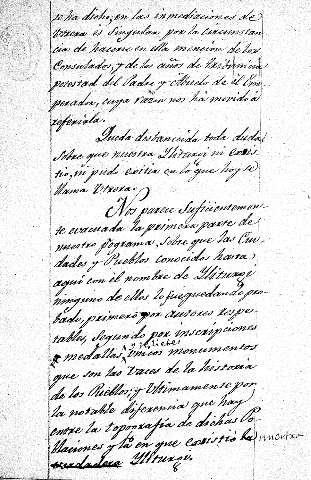 se ha dicho, en las inmediaciones de
Utrera es singular por la circunstan
cia de hacerse en ella mencion de los
Consulados, y de los años de tribunicia
potestad del Padre y Abuelo de el Em
perador, cuya razon nos ha movido a
referirla.
Queda desbanecida toda duda
sobre que nuestra Yliturgi ni exis
tio, ni pudo existir en lo que hoy se
llama Utrera.
Nos parece suficientemen
te evacuada la primera parte de
nuestro programa sobre que las Ciu
dades y Pueblos conocidos hasta
aqui con el nombre de Yliturgi
ninguno de ellos lo fue quedando pro
bado, primero por autores respe
tables, segundo por inscripciones
y medallas, unicos monumentos
que son las voces de la historia
de los Pueblos; y ultimamente por
la notable diferencia que hay
entre la topografia de dichas Po
blaciones y la en que existio la nuestra
verdadera Yliturgi.